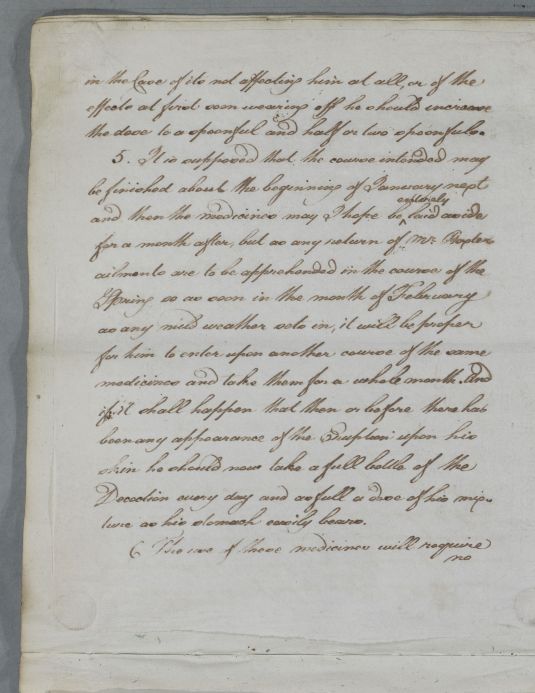 in the Case of its not affecting him at all, or of the
effects at first soon wearing off he should increase
the dose to a spoonful and half or two spoonfuls.
5. It is supposed that the course intended may
be finished about the beginning of January next
and then the medicines may I hope be entirely laid aside
for a month after, but as any return of Mr.
ailments are to be apprehended in the course of the
Spring so as soon in the month of February
as any mild weather sets in, it will be proper
for him to enter upon another course of the same
medicines and take them for a whole month. And
if it shall happen that then or before there has
been any appearance of the Eruption upon his
skin he should now take a full bottle of the
Decoction every day and as full a dose of his mix-
ture as his stomach easily bears.
6 The use of these medicines will require
no